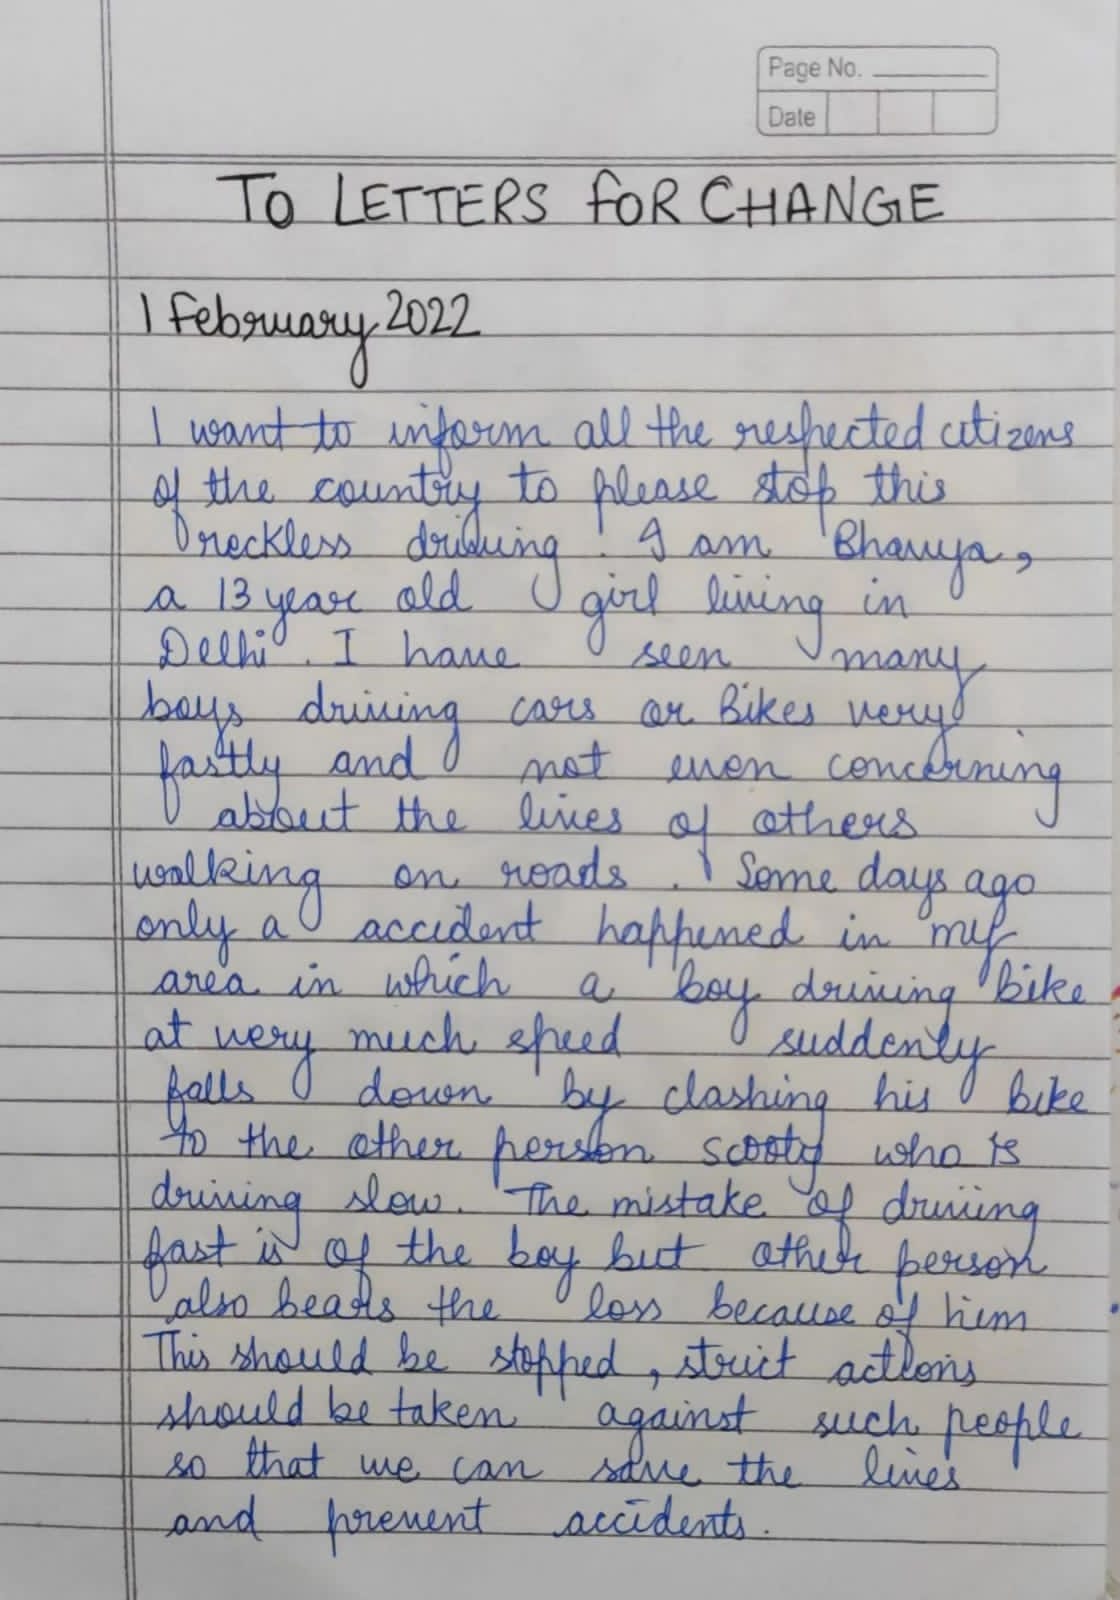 Page No.
Date
TO LETTERS FOR CHANGE
1 February 2022
I want to inform all the respected citizens
of the country to please stop this
reckless driving. I am Bhavya,
a 13 year old girl living in
Delhi. I have seen many
boys driving cars or Bikes very
fastly and not even concerning
about the lives of others
walking on roads. Some days ago
only a accident happened in my
area in which a boy driving bike
at very much speed suddenly
falls down by clashing his bike
to the other person scooty who is
driving slow. The mistake of driving
fast is of the boy but other person
also bears the loss because of him
This should be stopped, strict actions
should be taken against such people
so that we can save the lives
and prevent accidents.